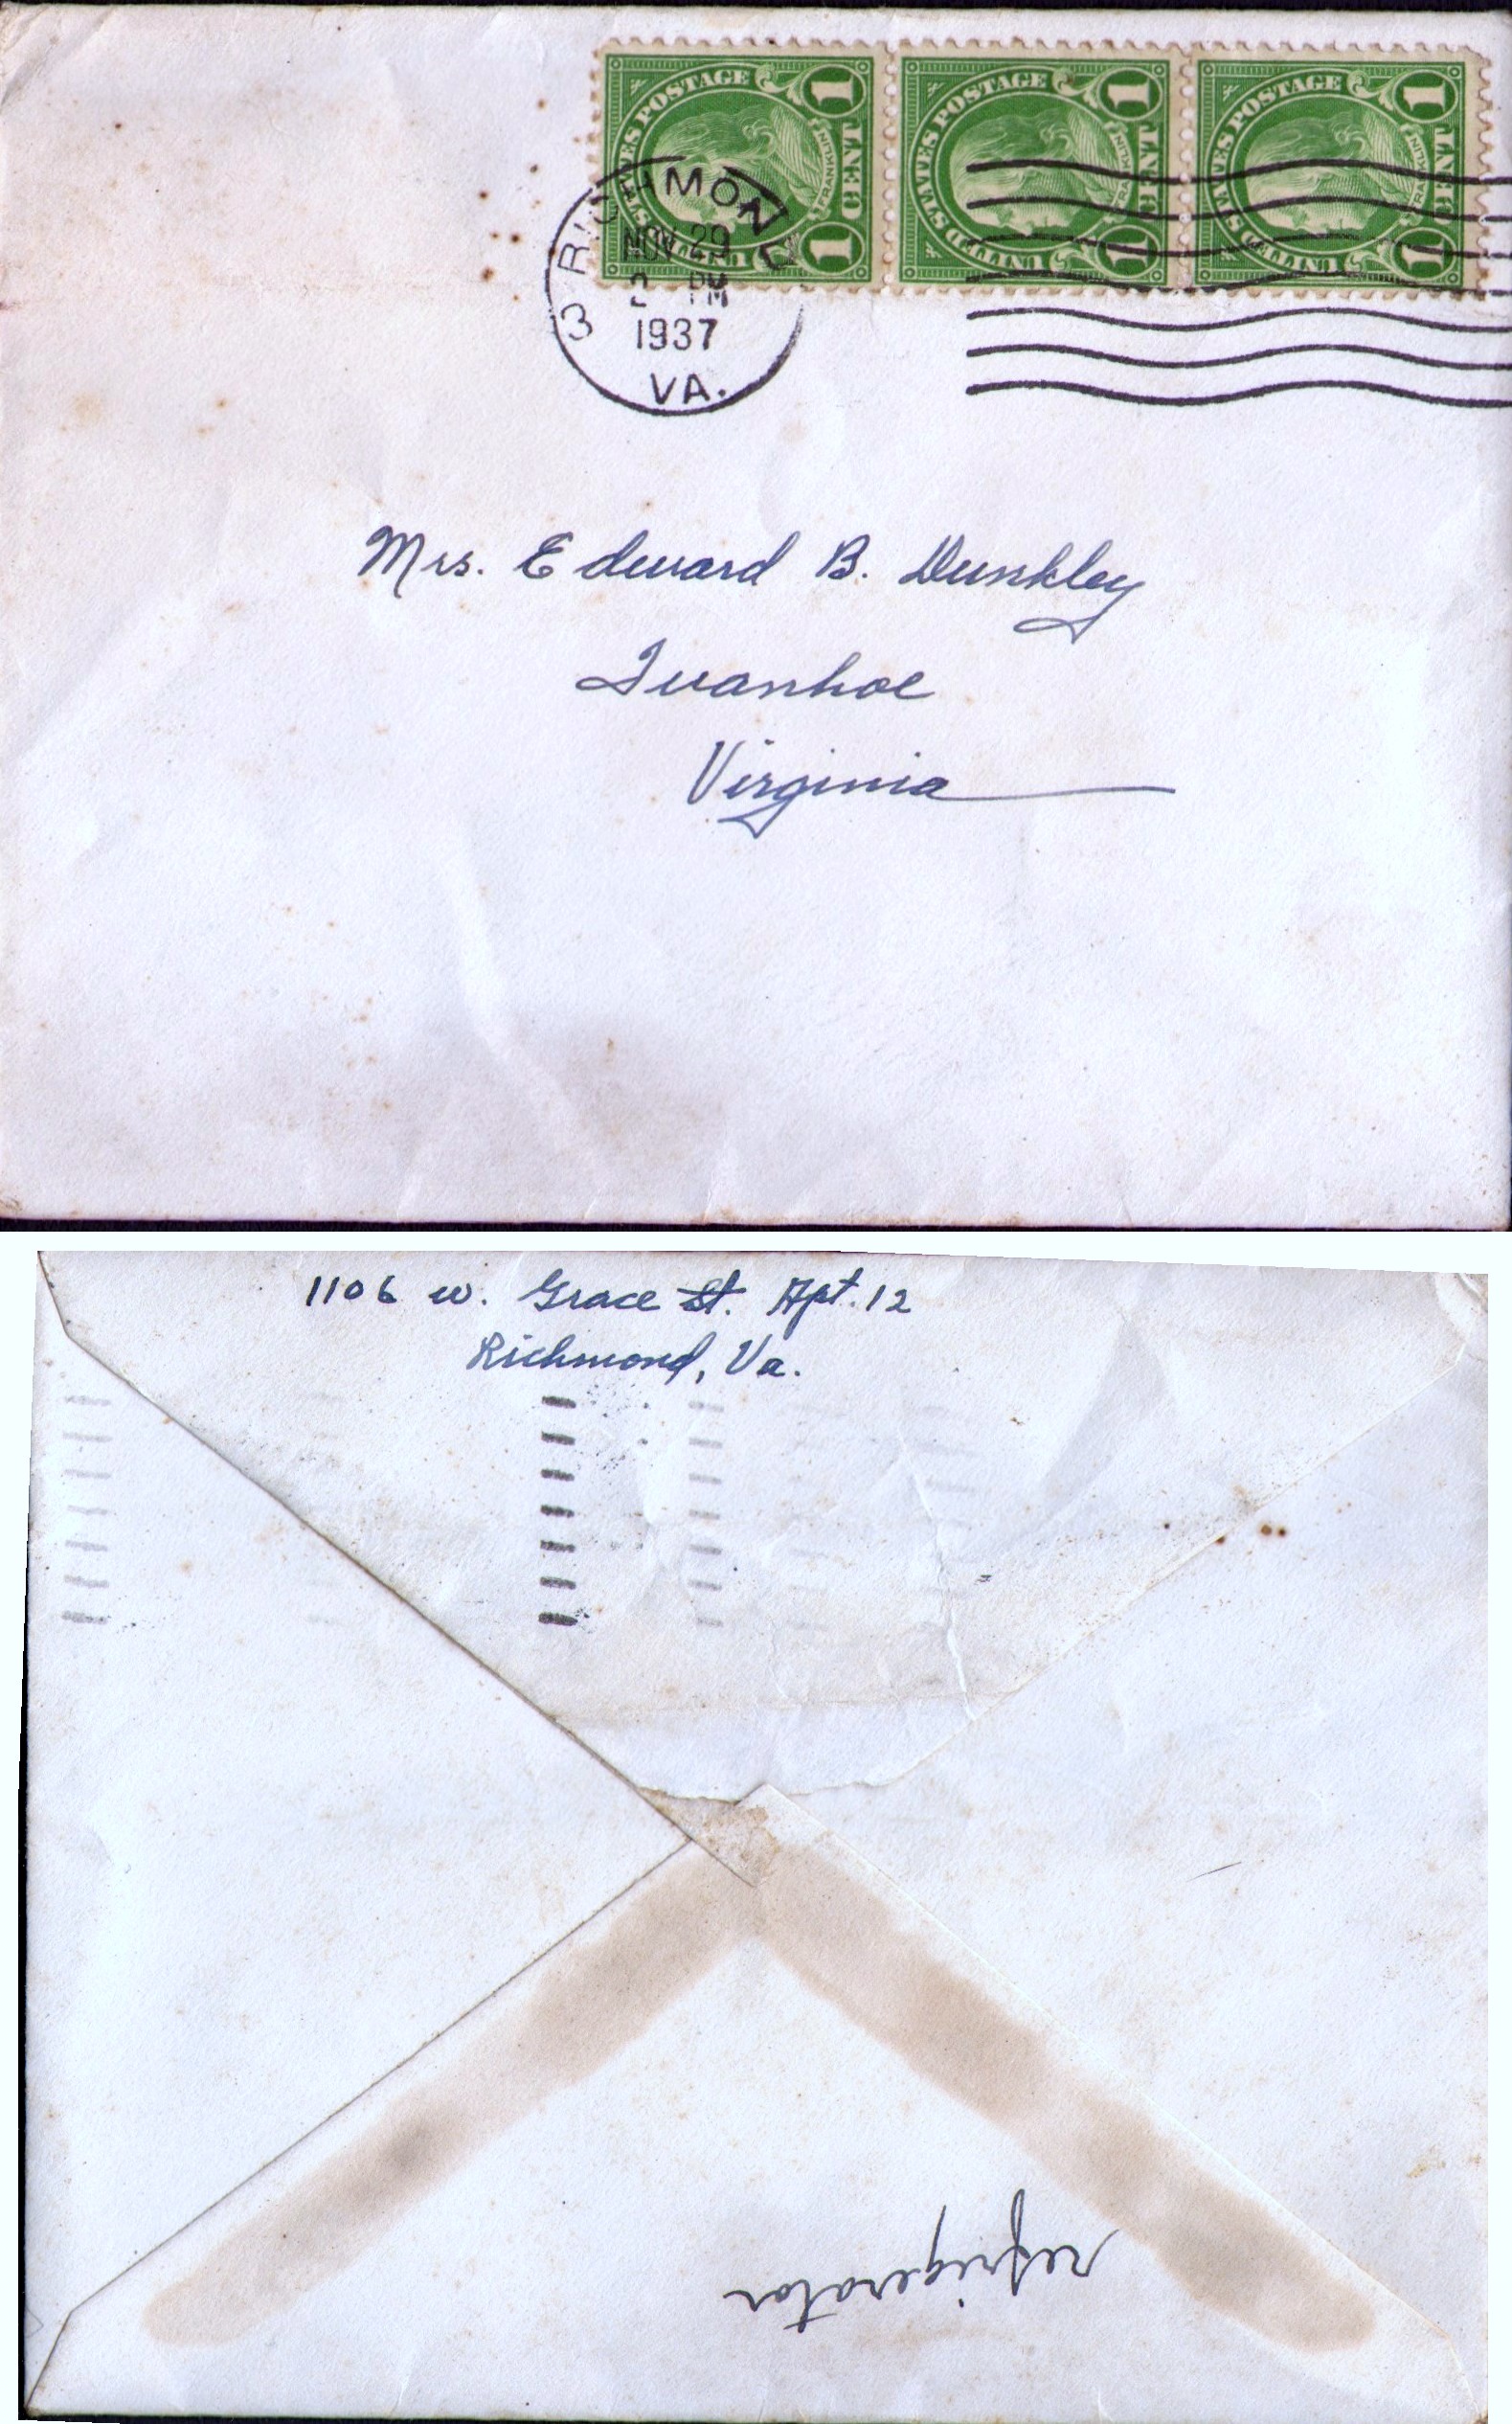 UNITED STATES POSTAGE
FRANKLIN
1 CENT 1
UNITED STATES POSTAGE
FRANKLIN
1 CENT 1
UNITED STATES POSTAGE
FRANKLIN
1 CENT 1
RICHMOND
3
NOV 29
2 PM
1937
VA.
Mrs. Edward B. Dunkley
Ivanhoe
Virginia
1106 W. Grace St. Apt. 12
Richmond, Va.
refrigerator